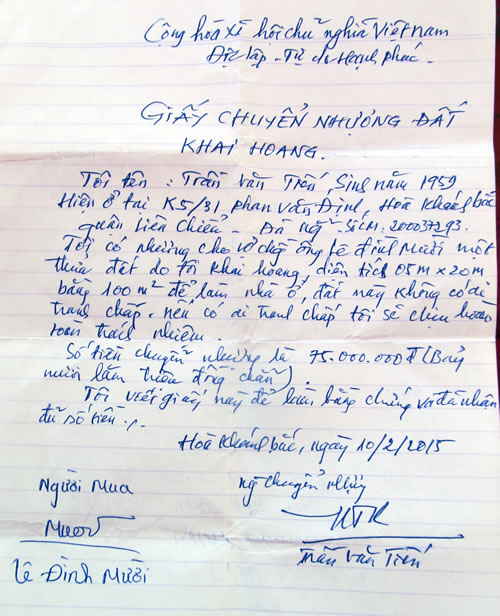 Cộng hòa xã hội chủ nghĩa Việt Nam
Độc lập - Tự do Hạnh phúc -
GIẤY CHUYỂN NHƯỢNG ĐẤT
KHAI HOANG.
Tôi tên : Trần Văn Tiến, Sinh năm 1959
Hiện ở tại K5/31 Phan Văn Định, Hoà Khánh bắc
quận Liên Chiểu - Đà Nẵng SCM: 200037293.
Tôi có nhường cho vợ chồng ông Lê đình Mười một
thửa đất do tôi khai hoang, diện tích 05m x 20m
bằng 100m² để làm nhà ở, đất này không có ai
tranh chấp. nếu có ai tranh chấp tôi sẽ chịu hoàn
toàn trách nhiệm.
Số tiền chuyển nhượng là 75.000.000đ (Bảy
mươi lăm triệu đồng chẵn)
Tôi viết giấy này để làm bằng chứng và đã nhận
đủ số tiền ./.
Hoà Khánh bắc, ngày 10/2/2015
Người Mua
ng chuyển nhượng
Mười
Lê Đình Mười
Trần Văn Tiến